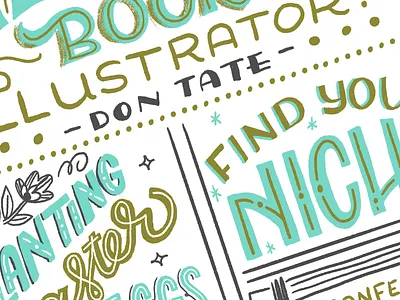 BOOK
ILLUSTRATOR
- DON TATE -
FIND YOU
NICH
ANTING
aster
EGGS
ONFE